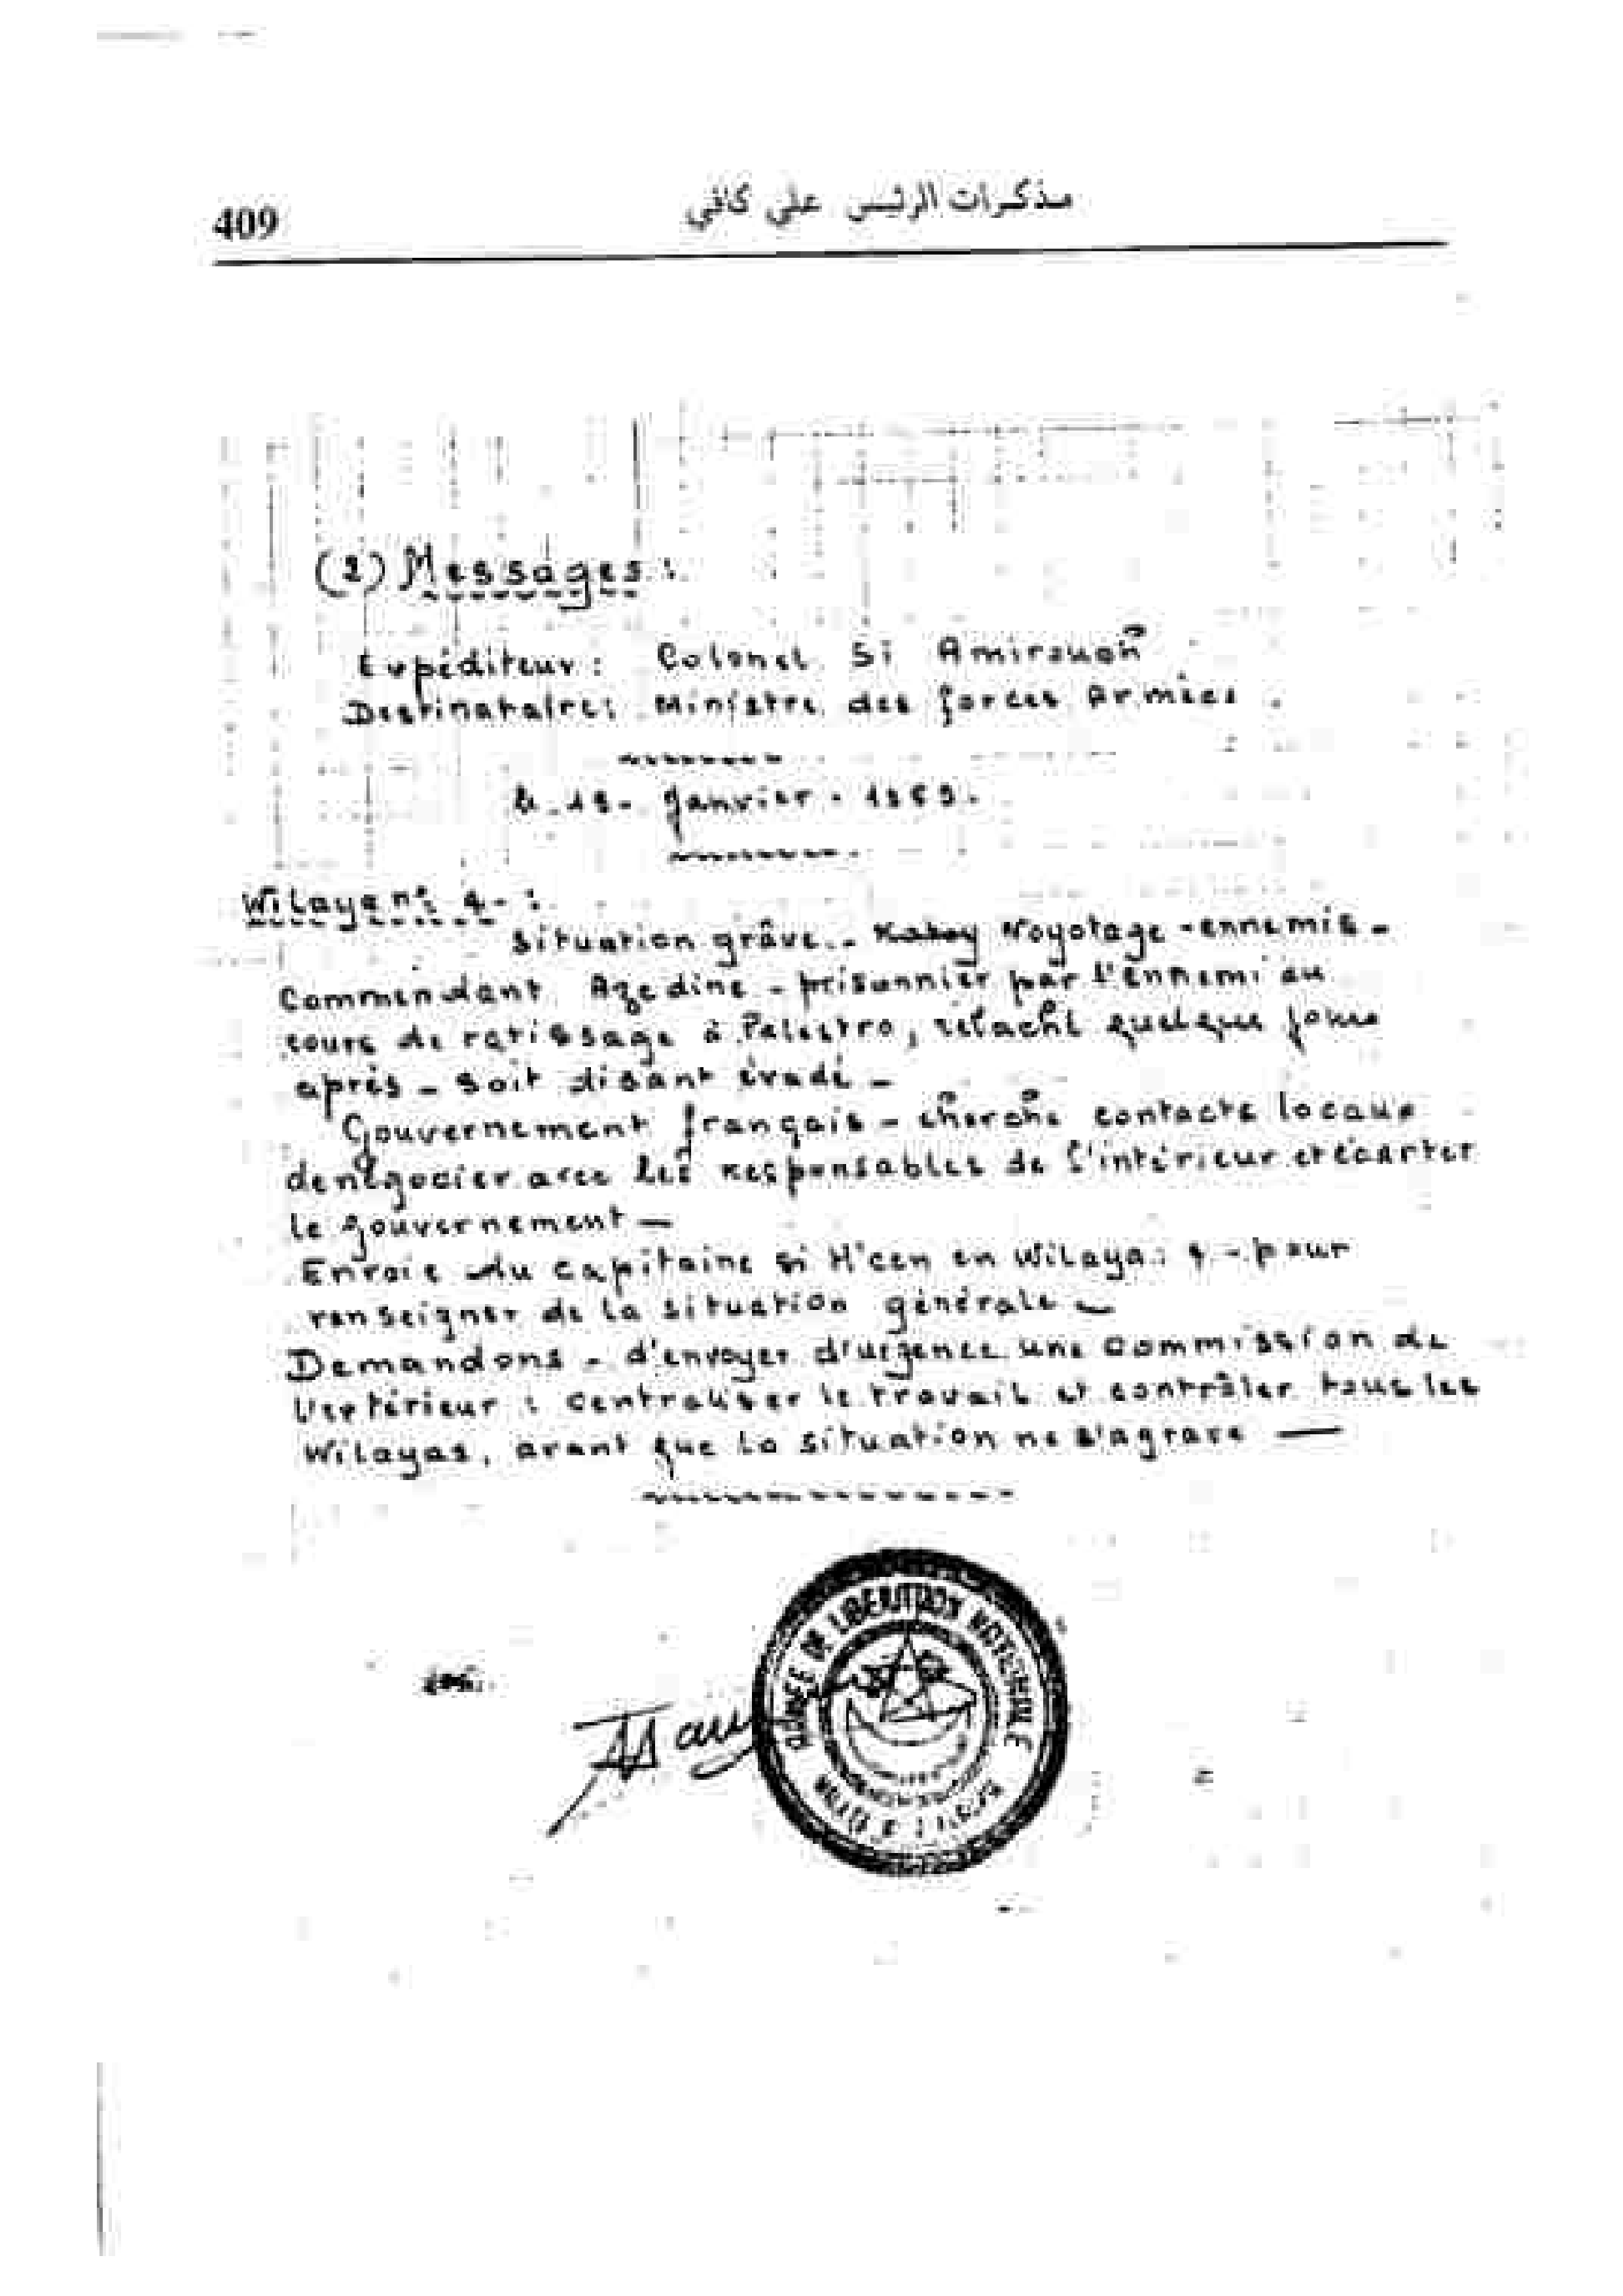 مذكرات الرئيس علي كافي
409
(2) Messages :
Expéditeur : Colonel Si Amirouch
Destinataire : Ministre des forces Armées
Janvier
Wilaya n° 4 - :
Situation grâve. - Noyotage - ennemis -
Commendant Azedine - prisunnier par l'ennemi au
cours de ratissage à Palestro, relaché quelque jours
après - soit disant évadé -
Gouvernement français - cherche contacts locaux
de négocier avec les responsables de l'intérieur et écarter
le gouvernement -
Envoie du capitaine si H'cen en Wilaya : 4 - pour
renseigner de la situation générale -
Demandons - d'envoyer d'urgence une Commission de
l'extérieur : centraliser le travail et contrôler tous les
Wilayas, avant que la situation ne s'agrave -
ARMEE DE LIBERATION NATIONALE